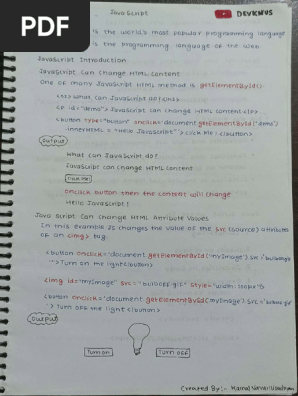 PDF
JavaScript
DEVKNUS
is the world's most popular programming language
is the programming language of the web.
JavaScript Introduction
JavaScript can change HTML content
One of many JavaScript HTML method is getElementById()
<h2> what can JavaScript do! </h2>
<p id="demo"> JavaScript can change HTML content </p>
<button type="button" onclick='document.getElementById("demo")
.innerHTML = "Hello JavaScript"'> click Me! </button>
Output
What can JavaScript do!
JavaScript can change HTML content
Click Me!
onclick button then the content will change
Hello JavaScript!
Java Script can change HTML Attribute Values
In this example JS changes the value of the src (source) attribute
of an <img> tag.
<button onclick="document.getElementById('myImage').src=
'> Turn on the light </button>
<img id="myImage" src="bulboff.gif" style="width:
<button onclick="document.getElementById('myImage').src=
'> Turn OFF the light </button>
Output
Turn on
Turn OFF
Created By:-